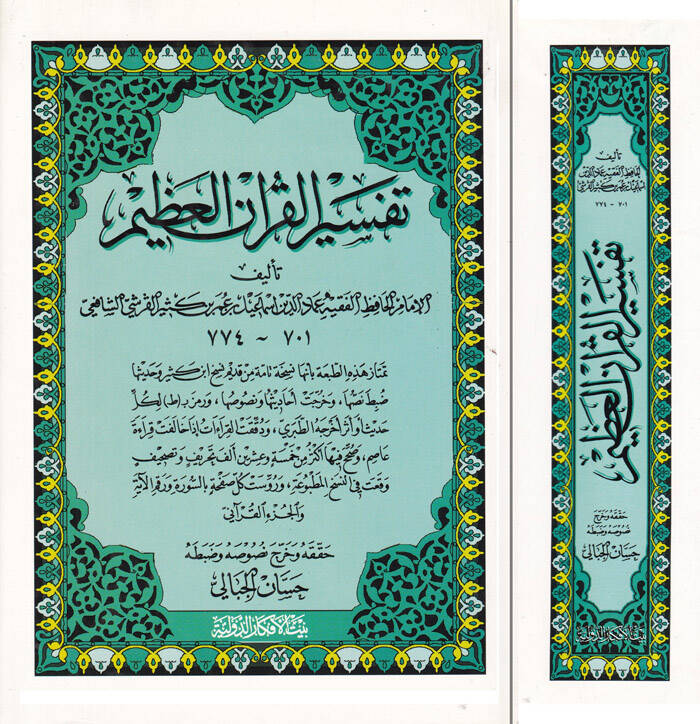 تفسير القرآن العظيم
تأليف
الإمام الحافظ الفقيه عماد الدين اسماعيل بن عمر بن كثير القرشي الشافعي
٧٠١ ~ ٧٧٤
تمتاز هذه الطبعة بأنها نسخة تامة من قديم نسخ ابن كثير وحديثها
ضبط نصها، وخرجت أحاديثها ونصوصها، ورمز بـ(ط) لكل
حديث أو أثر أخرجه الطبري، ودققت القراءات إذا خالفت قراءة
عاصم، وصحح فيها أكثر من خمسة وعشرين ألف تحريف وتصحيف
وقعت في النسخ المطبوعة، وروست كل صفحة بالسورة ورقم الآية
والجزء القرآني
حققه وخرج نصوصه وضبطه
حسان الجبالي
بيت الأفكار الدولية
تأليف
الحافظ الفقيه عماد الدين
اسماعيل بن عمر بن كثير القرشي
٧٠١ - ٧٧٤
تفسير القرآن العظيم
حققه وخرج
نصوصه وضبطه
حسان الجبالي
بيت الأفكار الدولية